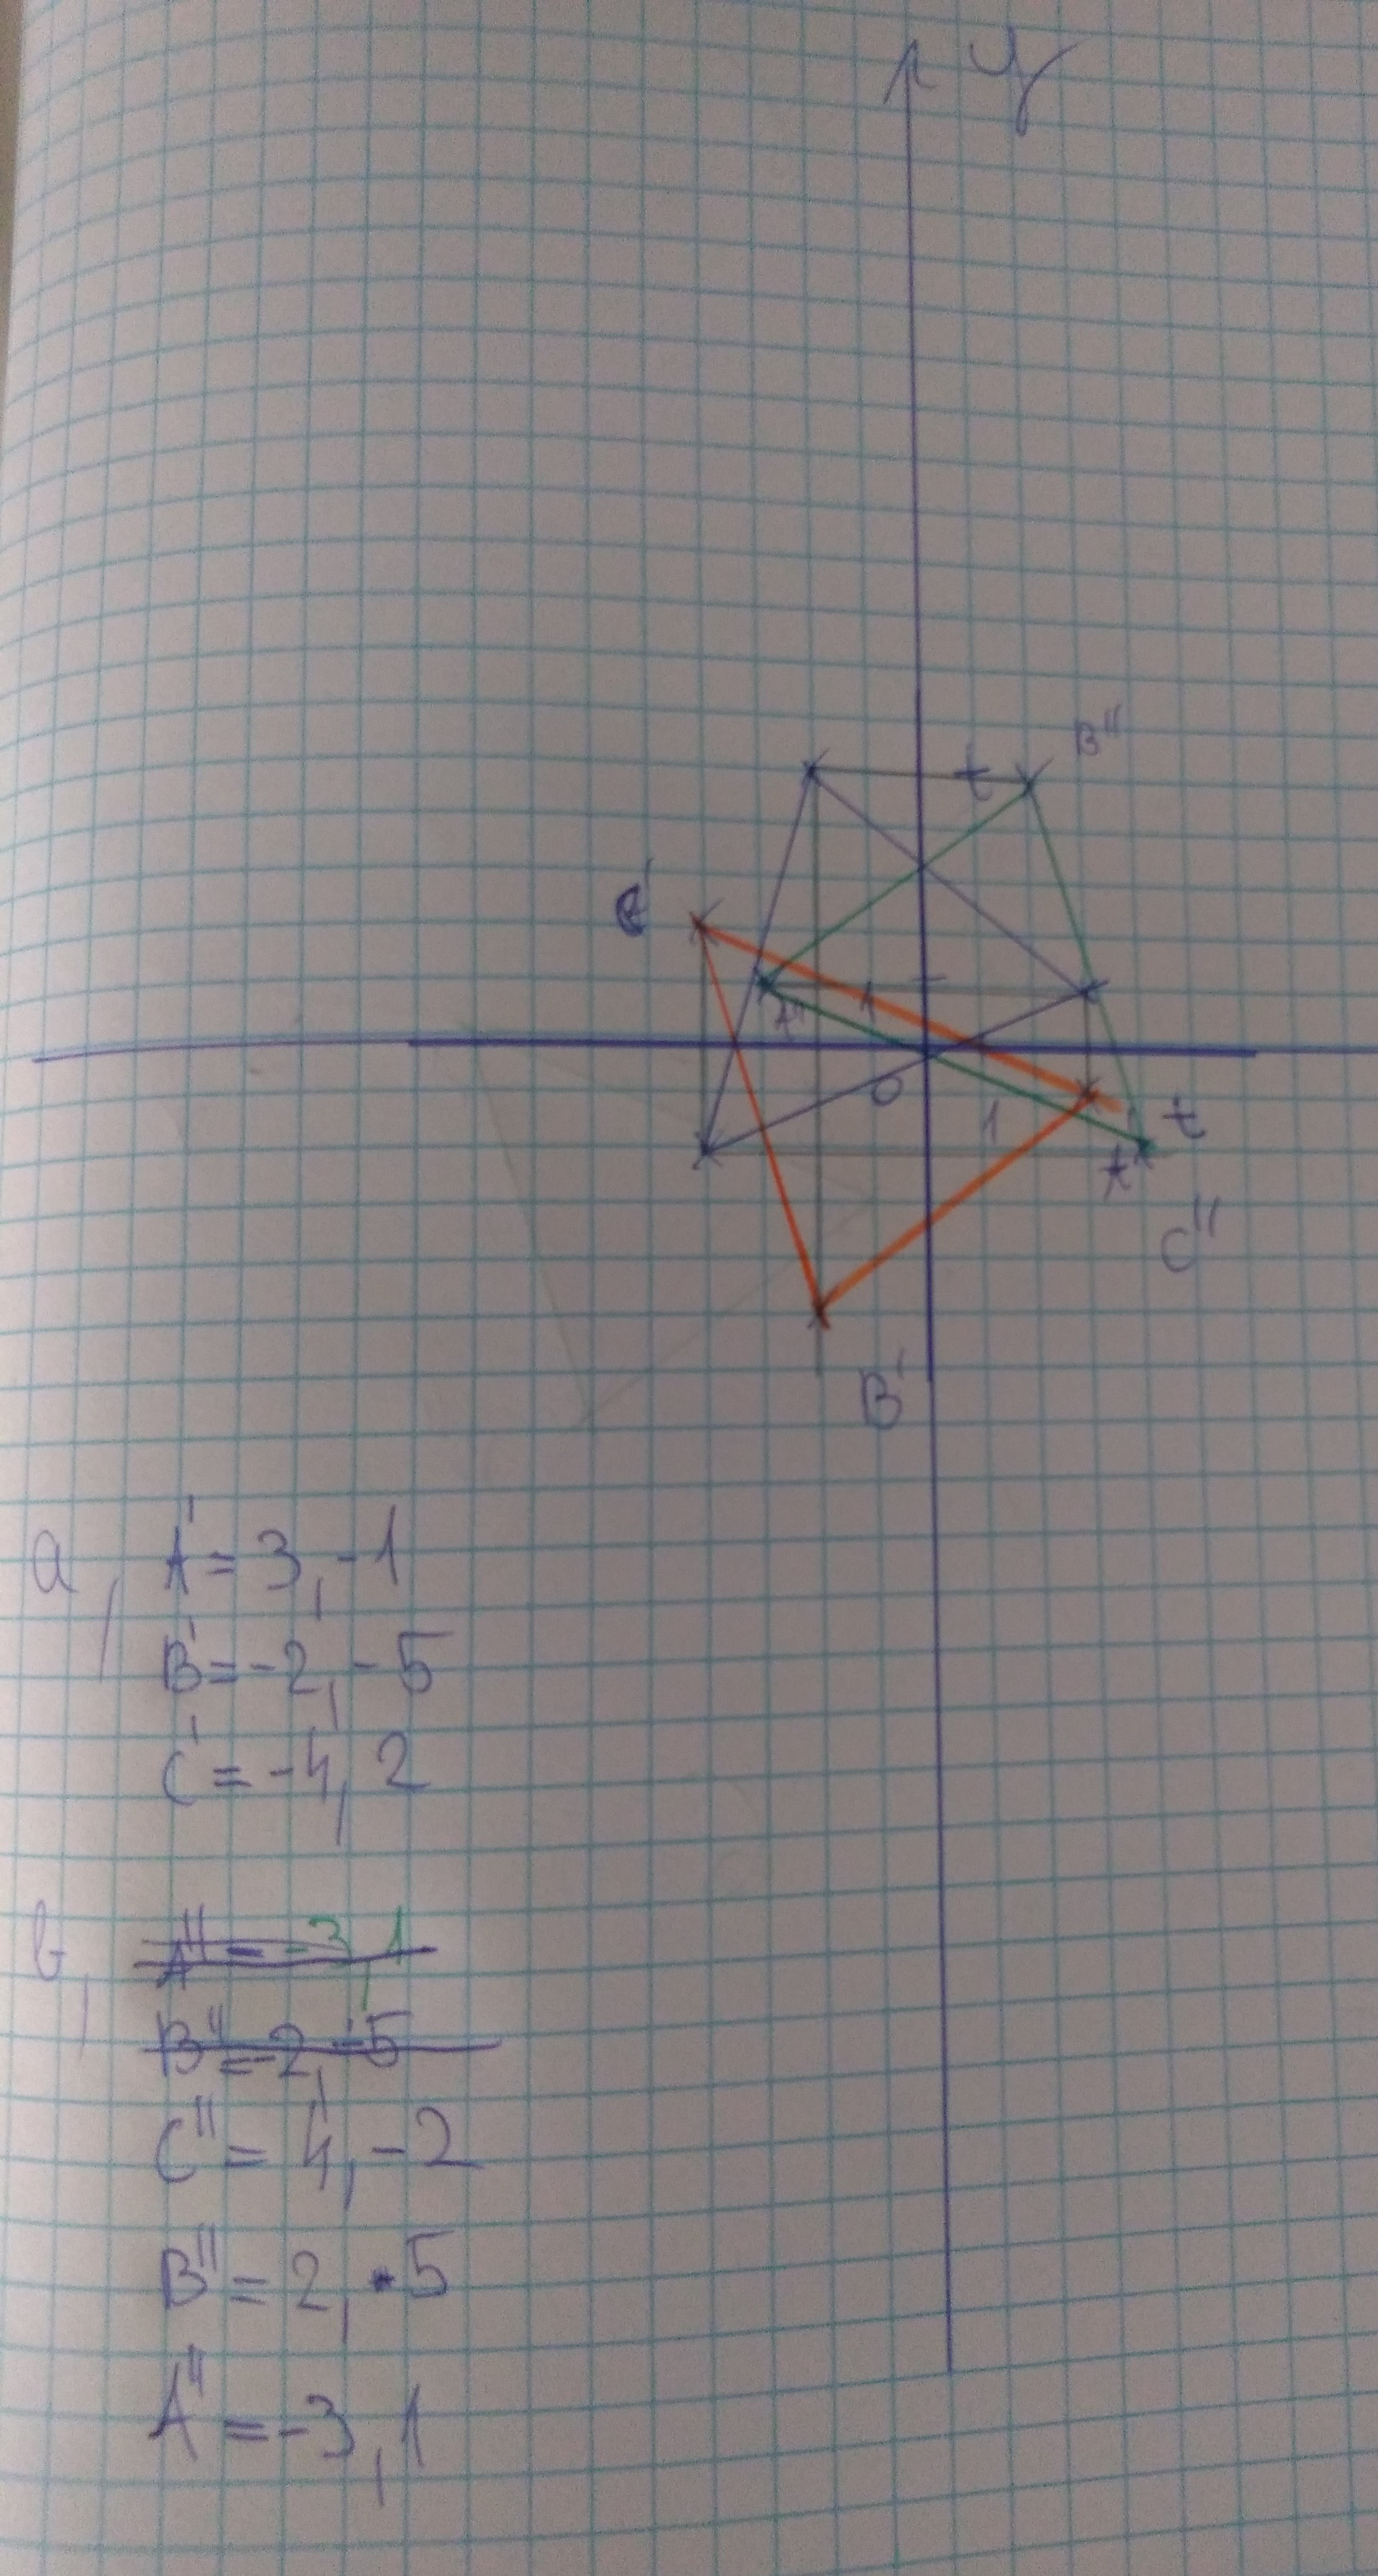 y
t B"
C'
A" 1
0 1 t
A'
C"
B'
a, A' = 3, -1
B' = -2, -5
C' = -4, 2
b, A" = -3, 1
B" = -2, -5
C" = 4, -2
B" = 2, 5
A" = -3, 1